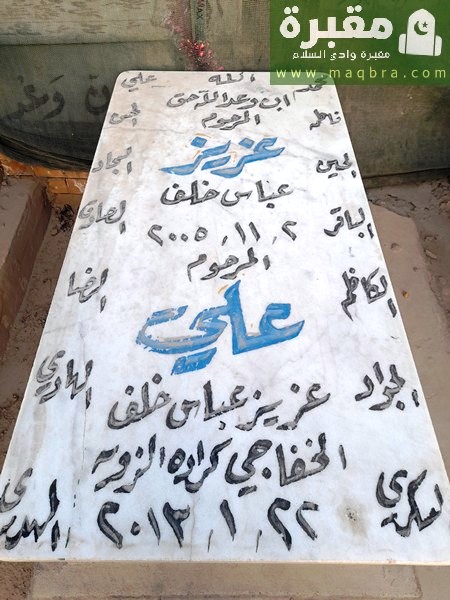 مقبرة
مقبرة وادي السلام
www.maqbra.com
محمد الله علي
ان وعد الله حق
فاطمة المرحوم الحسن
الحسين عزيز السجاد
عباس خلف
الباقر ٢ / ١١ / ٢٠٠٥ الصادق
المرحوم
الكاظم الرضا
علي
الجواد الهادي
عزيز عباس خلف
الخفاجي كراده الزويه
العسكري ٢٢ / ١ / ٢٠١٣ المهدي